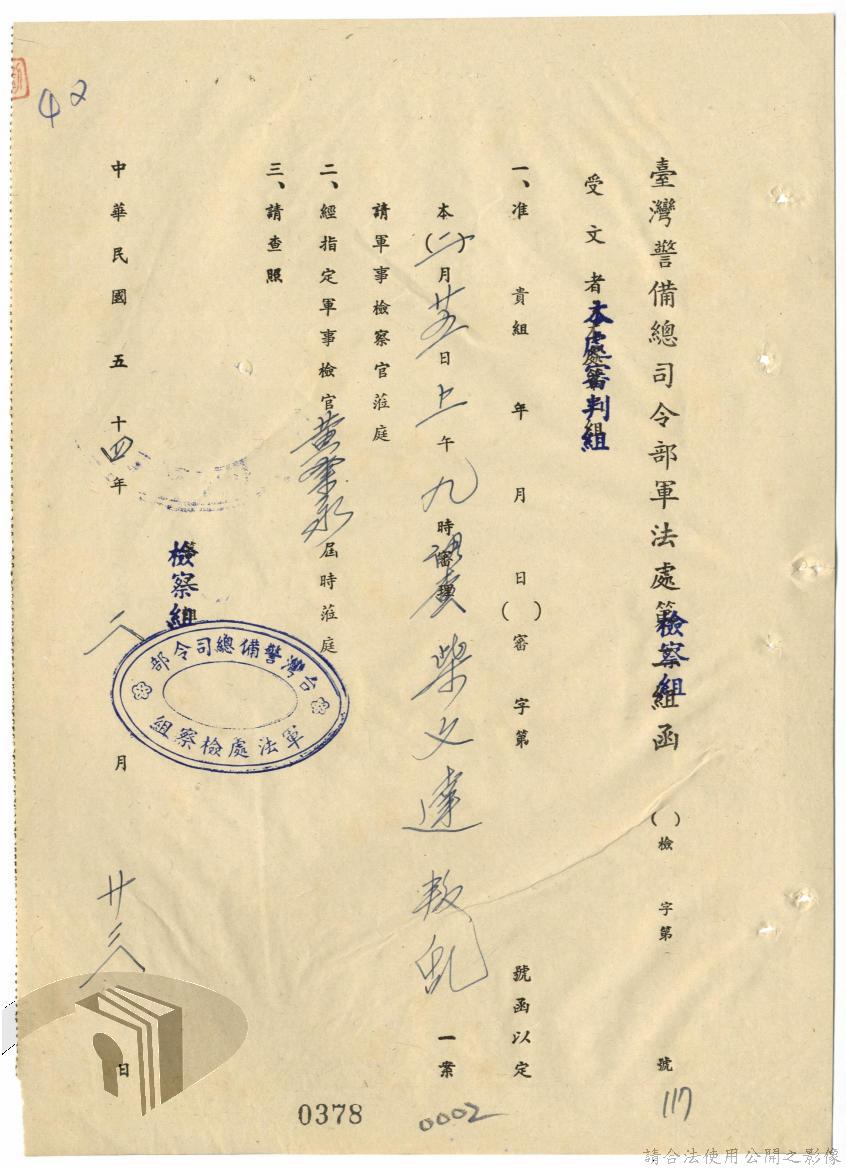 臺灣警備總司令部軍法處檢察組函 ( )檢 字第 號 117
受文者 本處審判組
一、准 貴組 年 月 日( )審 字第 號函以定
本(二)月廿五日上午九時 柴文達 叛亂 一案
請軍事檢察官蒞庭
二、經指定軍事檢官黃 永屆時蒞庭
三、請查照
檢察組
台灣警備總司令部
軍法處檢察組
中華民國五十四年 二 月 廿三 日
42
0378
0002
請合法使用公開之影像